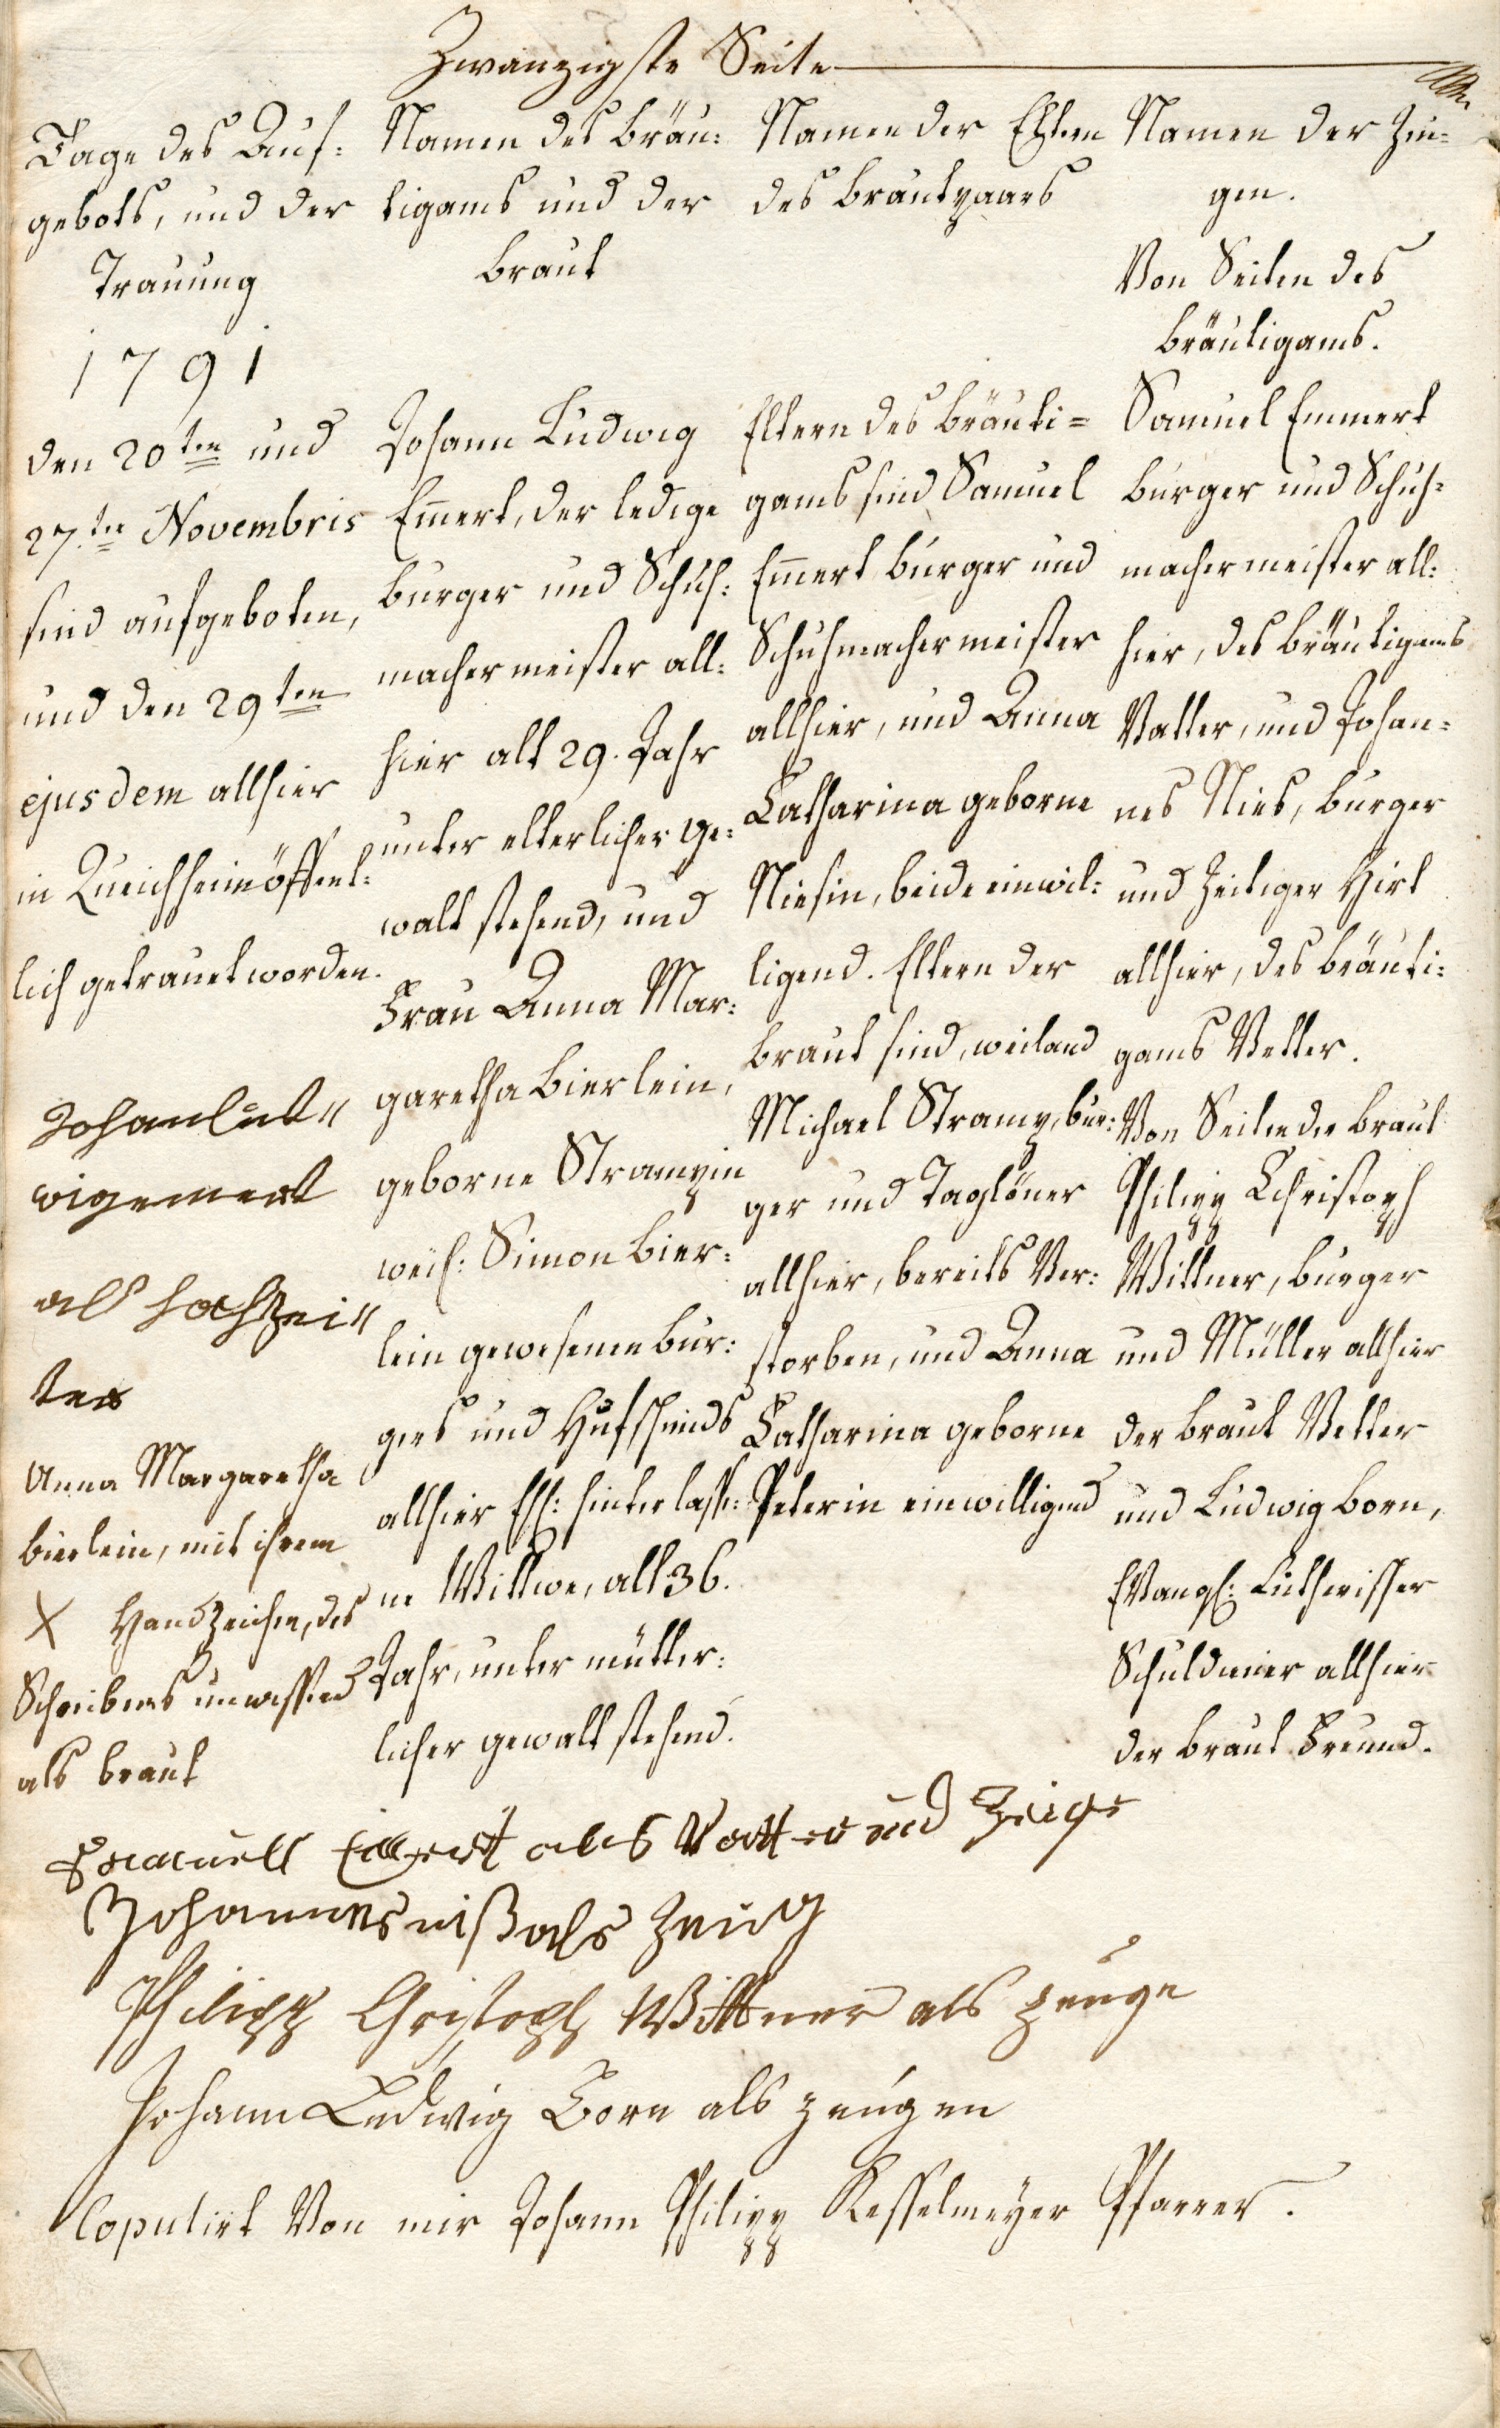 Zwanzigste Seite
Tage des Auf:
gebots, und der
Trauung
1791
den 20ten und
27.ten Novembris
sind aufgeboten,
und den 29ten
ejusdem allhier
in Queichheim öffent:
lich getrauet worden.
Johanlud"
wigemert
als hochzei"
ter
Anna Margaretha
Bierlein, mit ihrem
X Handzeichen, des
Schreibens unwissend
als Braut
Namen des Bräu:
tigams und der
Braut
Johann Ludwig
Em̅ert, der ledige
Burger und Schuh:
machermeister all:
hier alt 29. Jahr
unter elterlicher Ge:
walt stehend, und
Frau Anna Mar:
garetha Bierlein,
geborne Strampin
weil: Simon Bier:
lein gewesenen Bur:
gers und Hufschmids
allhier Ehl: hinterlasse:
ne Wittwe, alt 36.
Jahr, unter mütter:
licher gewalt stehend.
Namen der Eltern
des Brautpaars
Eltern des Bräuti=
gams sind Samuel
Em̅ert Burger und
Schuhmachermeister
allhier, und Anna
Catharina geborne
Niesin, beide einwil:
ligend. Eltern der
Braut sind, weiland
Michael Stramp, Bur:
ger und Taglöner
allhier, bereits Ver:
storben, und Anna
Catharina geborne
Peterin einwilligend
Namen der Zeu=
gen.
Von Seiten des
Bräutigams.
Samuel Emmert
Burger und Schuh=
machermeister all:
hier, des Bräutigams
Vatter, und Johan=
nes Nies, Burger
und Zeitiger Hirt
allhier, des Bräuti:
gams Vetter.
Von Seiten der Braut
Philipp Christoph
Wittner, Burger
und Müller allhier
der Braut Vetter
und Ludwig Born,
Evangl: Lutherischer
Schuldiener allhier
der Braut Freund.
Samuell Emert als Vatter und Zeige
Johannes niß als Zeug
Philipp Christoph Wittner als zeuge
Johann Ludwig Born als zeugen
Copulirt Von mir Johann Philipp Kesselmeyer Pfarrer.